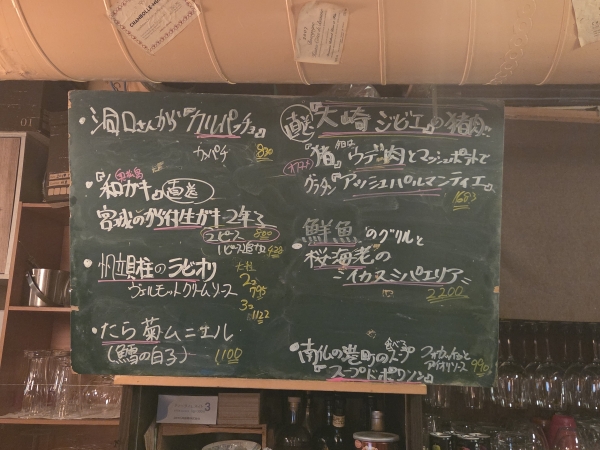 CHAMBOLLE-MU
・洞口さんから『カルパッチョ』
カンパチ 830
・『和がキ』直送
宮城のから付生ガキ 2年子
2ピース 880
1ピース追加 420
・帆立貝柱のラビオリ
ヴェルモットクリームソース
2コ 795
3コ 1122
・たら菊ムニエル
(鱈の白子) 1100
直送『大崎ジビエ』の猪肉!!
オススメ 『猪』ウデ肉とマッシュポテトで
グラタン『アッシュパルマンティエ』
1683
・鮮魚のグリルと
桜海老の
イカスミパエリア
2200
・南仏の港町の食べるスープ
『スープドポワソン』
990